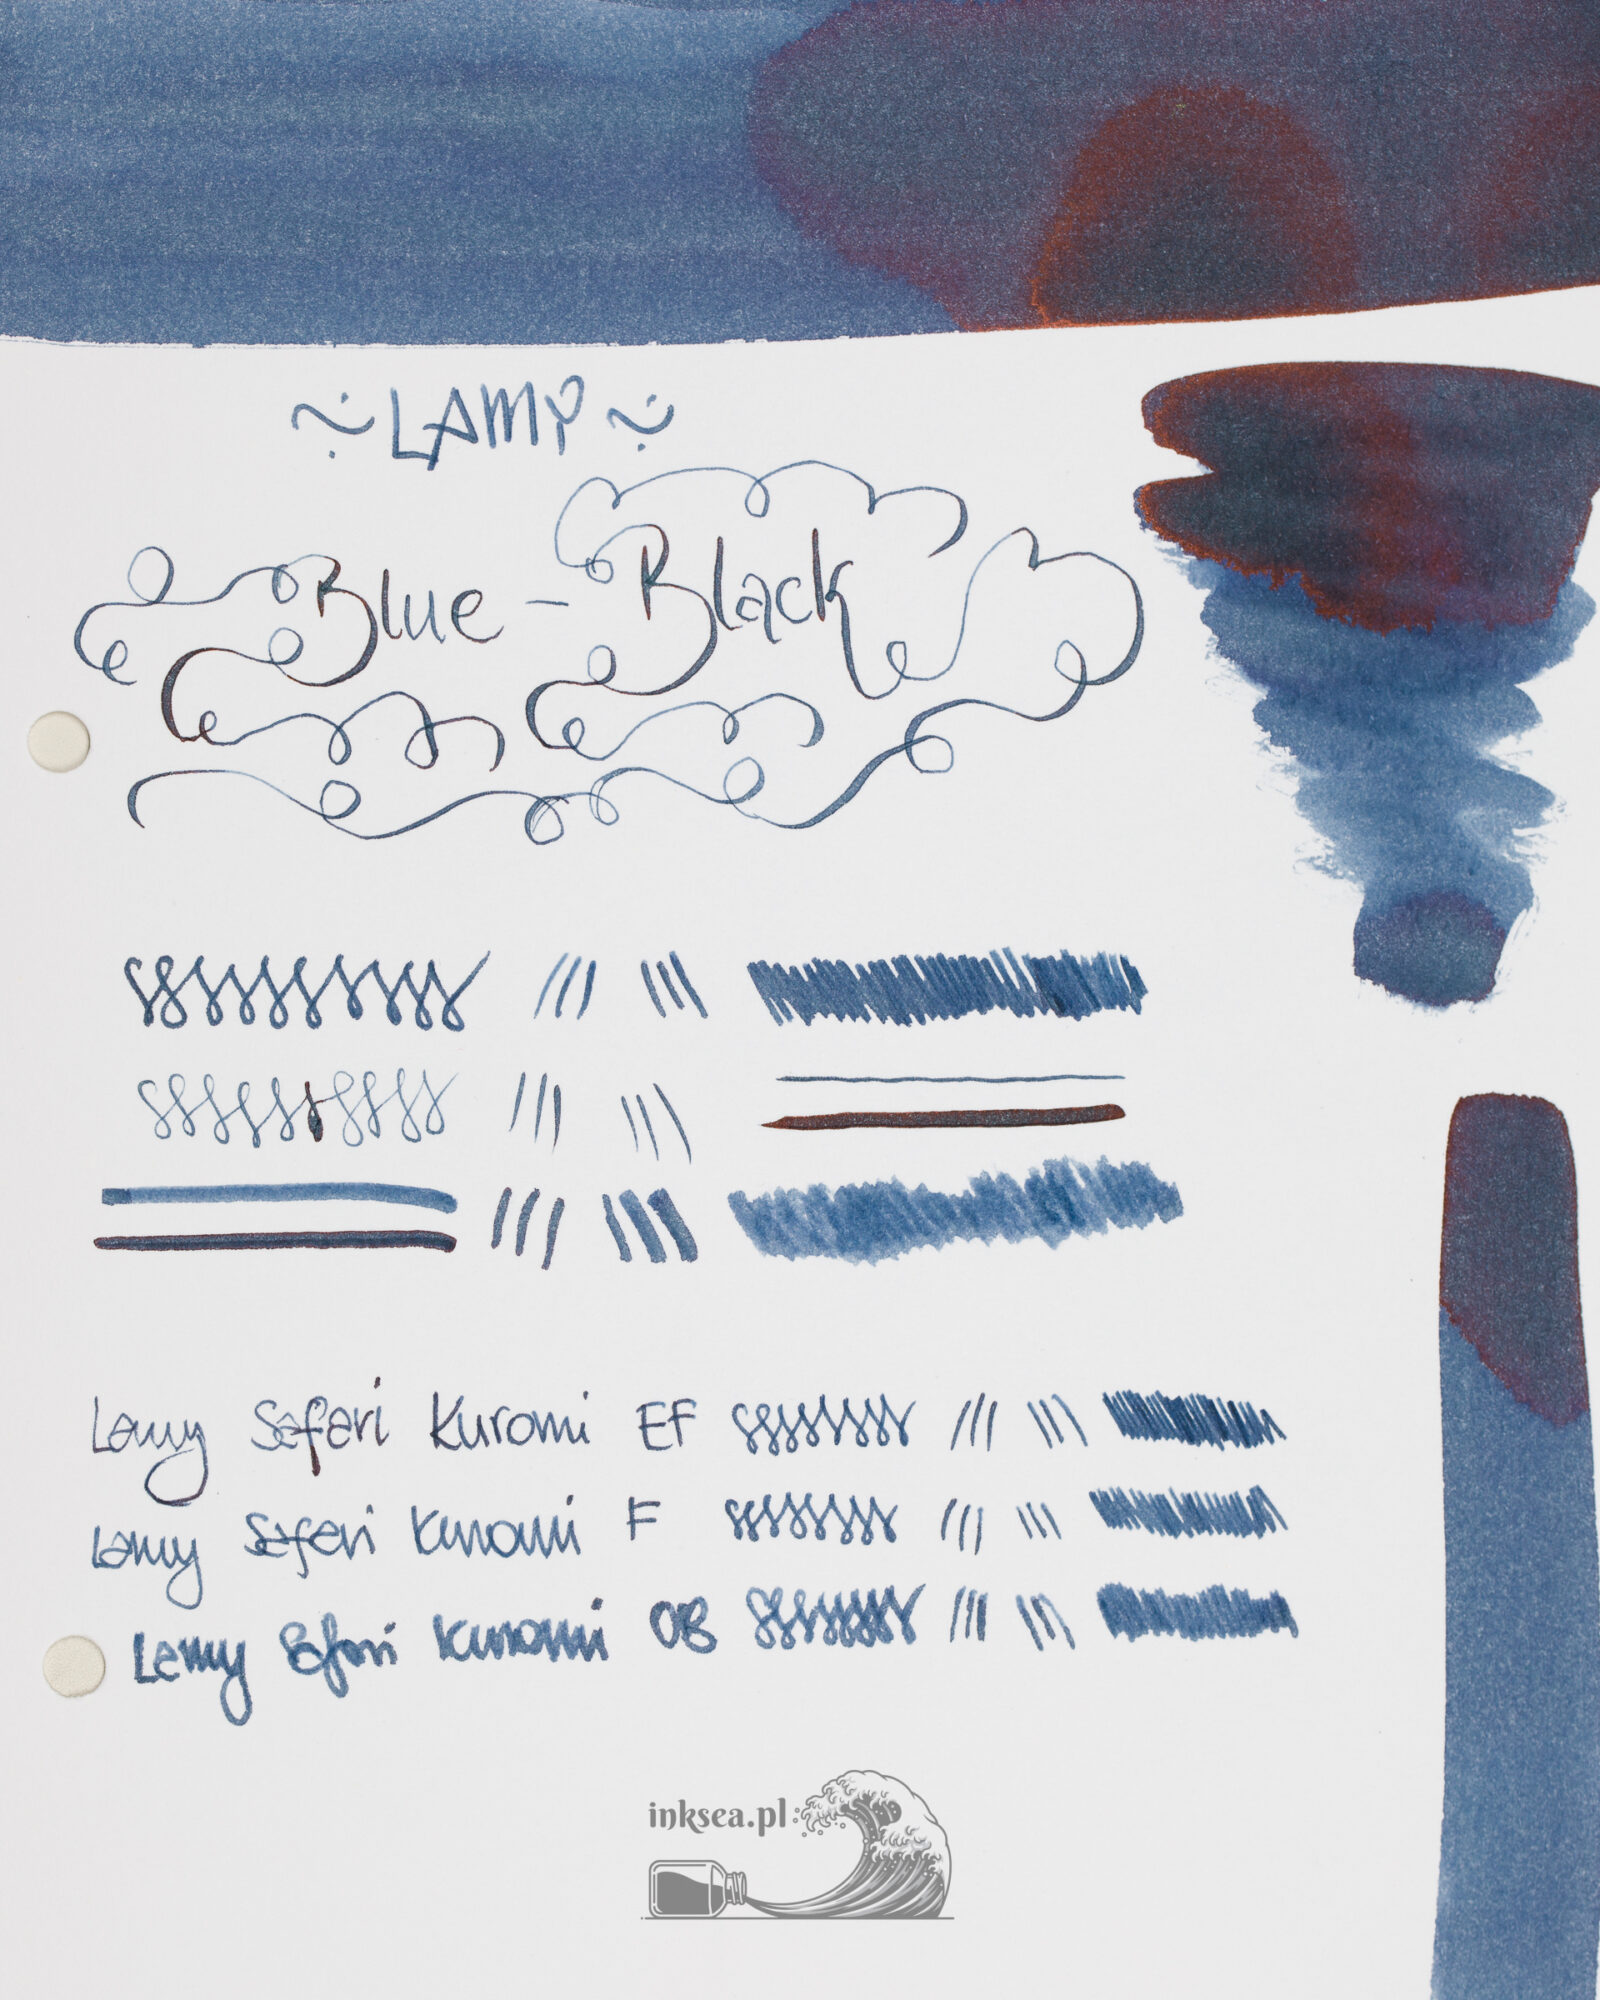 LAMY
Blue-Black
Lamy Safari Kuromi EF
Lamy Safari Kuromi F
Lamy Safari Kuromi OB
inksea.pl